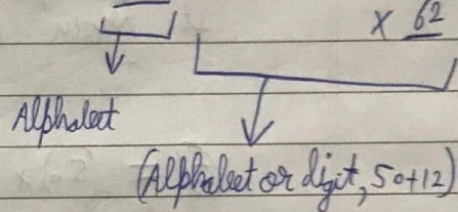 x 62
Alphabet
(Alphabet or digit, 50+12)